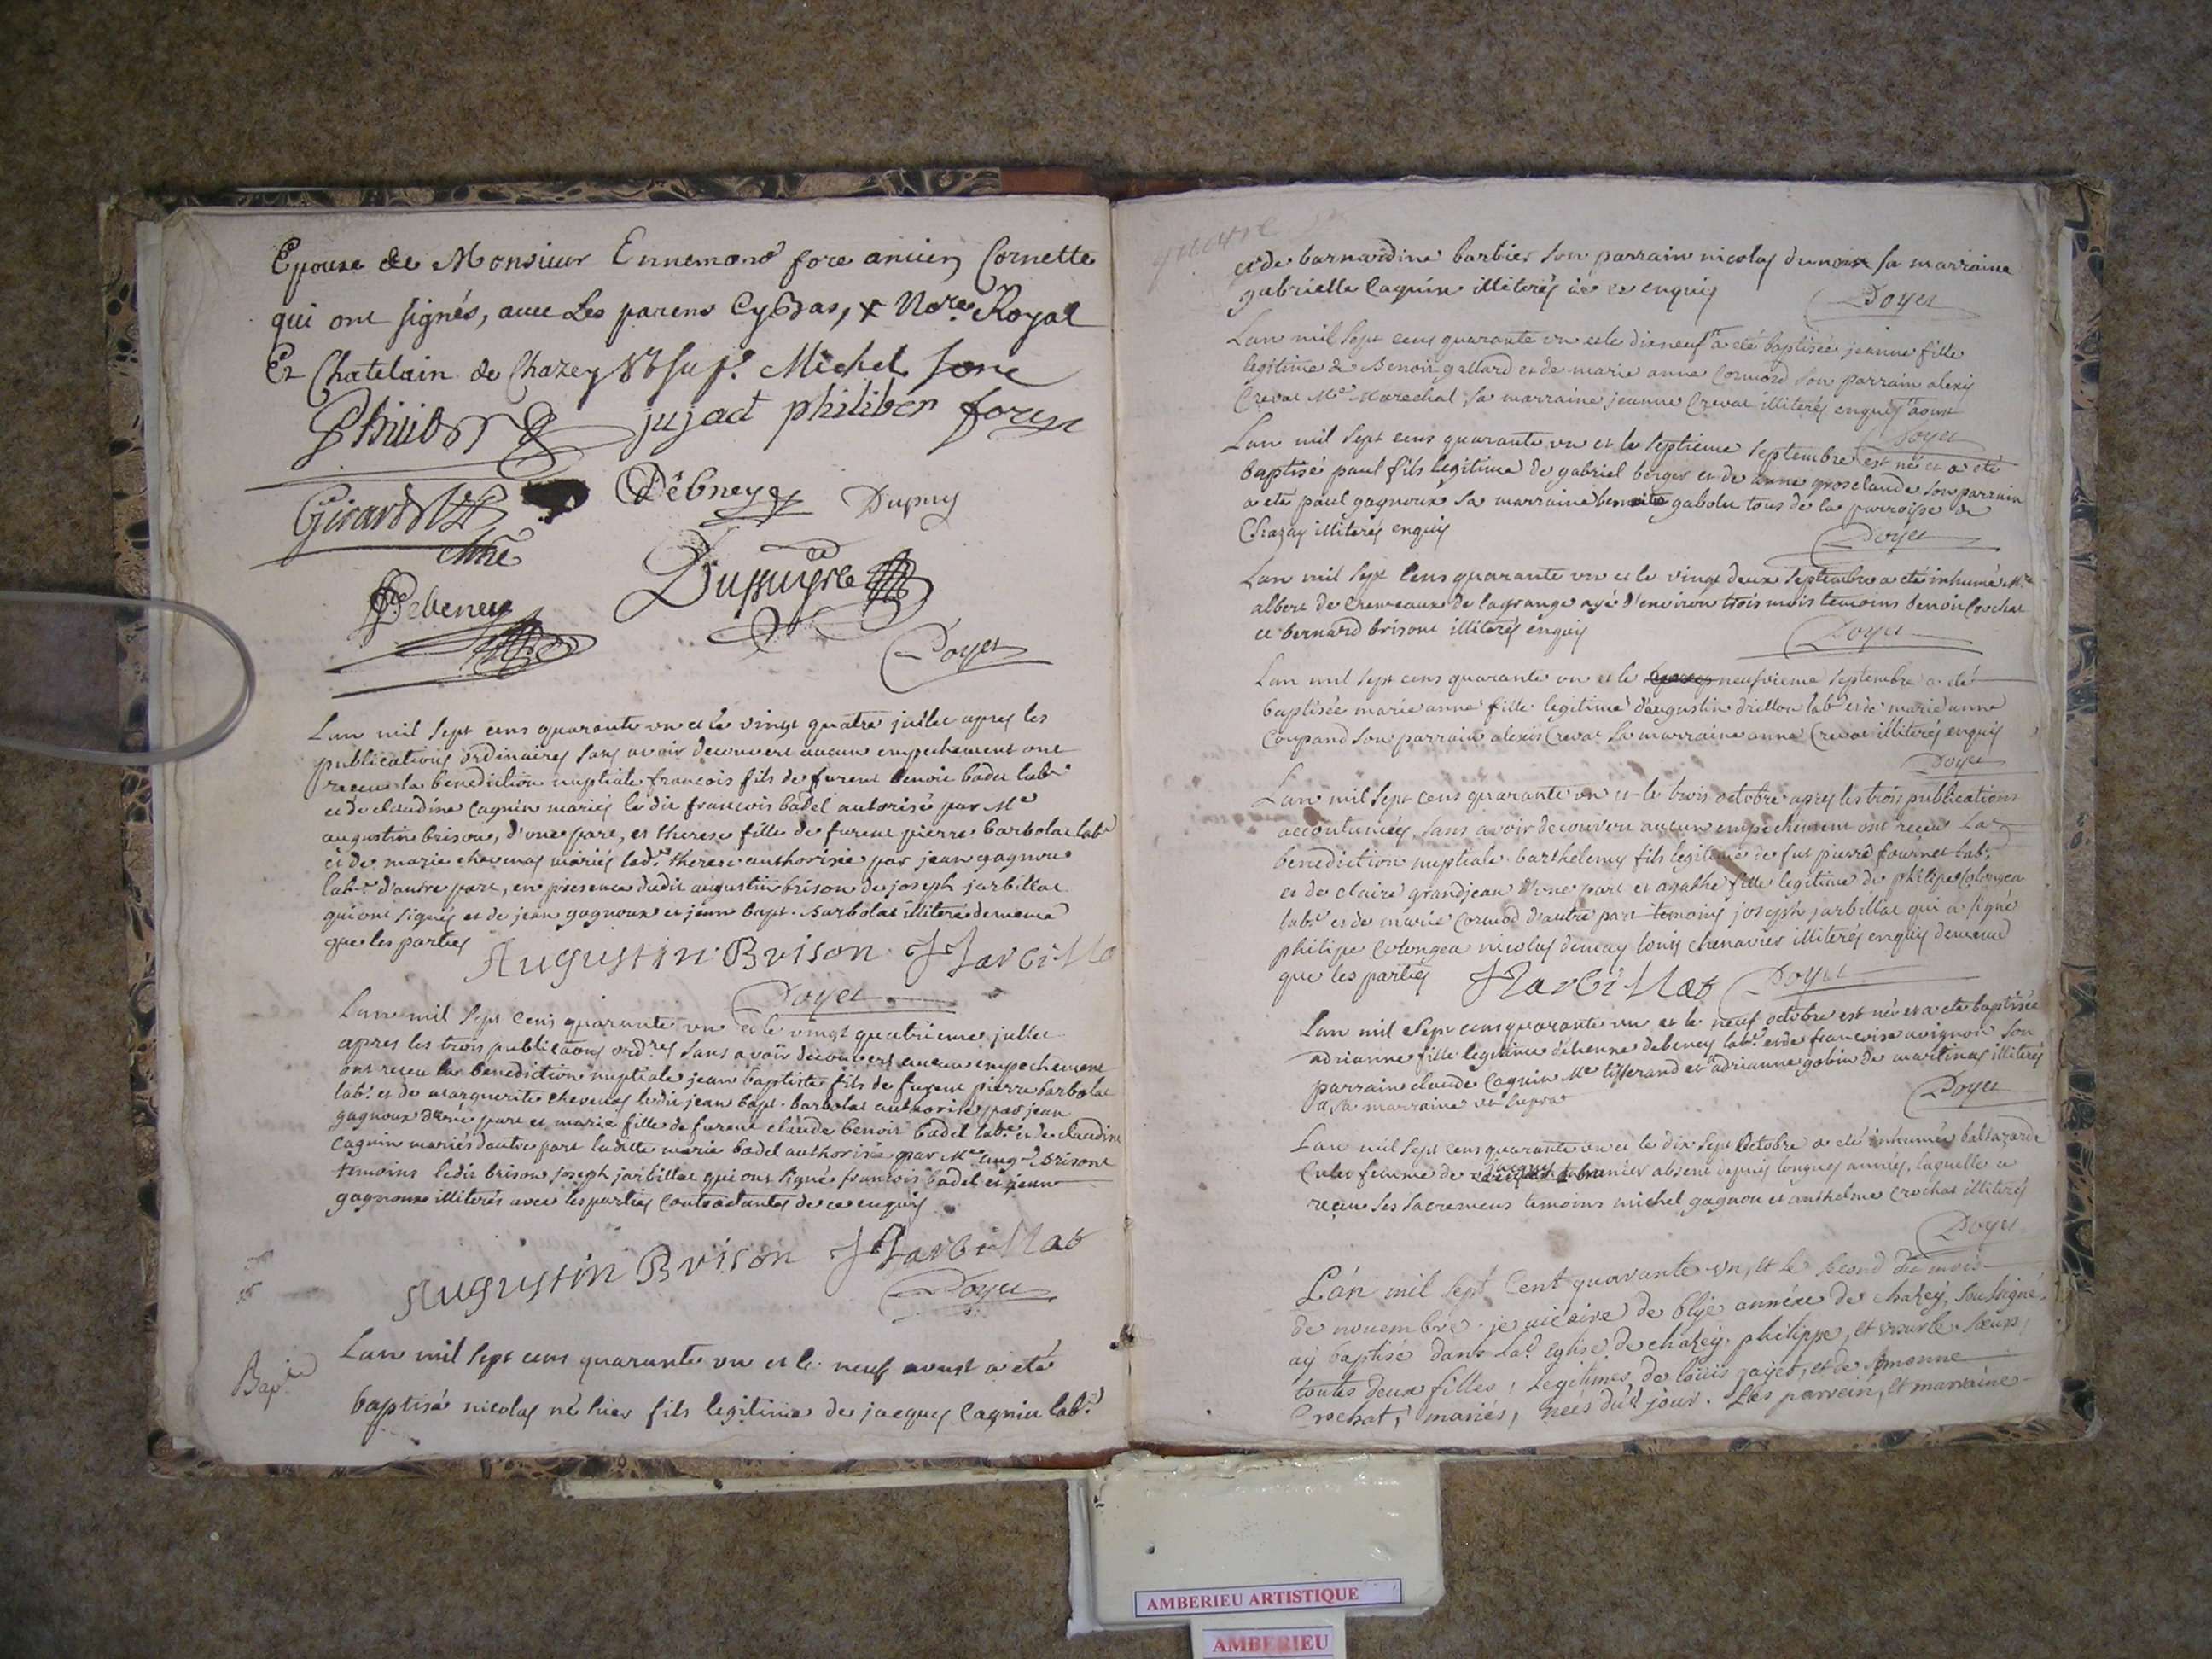 Epouse de Monsieur Ennemond fore ancien Cornette
qui ont signés, avec Les parens Cy bas, x No.re Royal
Et Chatelain de Chazey Michel fore
jujact philiber forest
Girard
Débeney Dupuy
Debeney
Doyet
Lan mil sept cens quarante un et le vingt quatre juillet apres les
publications ordinaires sans avoir decouvert aucun empechement ont
receu la benediction nuptiale francois fils de furent benoit badel labr
et de claudine Cagnin mariés le dit francois badel autorisé par Me
augustin brison, d'une part, et therese fille de furent pierre barbolat labr
et de marie chevenas mariés lad.e therese authorisée par jean gagnou
labr d'autre part, en presence dudit augustin brison de joseph jarbillat
qui ont signés et de jean gagnoux et jean bapt. barbolat illiteré de meme
que les parties Augustin Brison J Jarbilla
Doyet
Lan mil sept cens quarante un et le vingt quatrieme jullet
apres les trois publicaons ord.res sans avoir decouvert aucun empechement
ont receu la benediction nuptiale jean baptiste fils de furent pierre barbolat
lab.r et de marguerite chevenas ledit jean bapt. barbolat authorisé par jean
gagnoux d'une part et marie fille de furent claude benoit badel lab.r et de claudine
Cagnin mariés d'autre part laditte marie badel authorisée par Me aug.n Brisont
temoins ledit brison joseph jarbillat qui ont signé francois badel et jean
gagnoux illiterés avec les parties Contractantes de ce enquis
Augustin Brison J Jarbillat
Doyet
Bap.
Lan mil sept cens quarante un et le neuf aoust a eté
baptisé nicolas né hier fils legitime de jacques Cagnin lab.r
et de barnardine barbier son parrain nicolas dunoix sa marraine
gabrielle Caguin illiterés de ce enquis Doyet
Lan mil sept cens quarante un et le dixneuf a eté baptisée jeanne fille
legitime de Benoit gallard et de marie anne Cormord son parrain alexis
Crevat Me Marechal sa marraine jeanne Crevat illiterés enquis aoust
Doyet
Lan mil sept cens quarante un et le septieme septembre est né et a eté
baptisé paul fils legitime de gabriel berger et de anne grosclaude son parrain
a eté paul gagnoux sa marraine benoite gabolet tous de la parroisse de
Chazay illiterés enquis Doyet
Lan mil sept Cens quarante un et le vingt deux septembre a eté inhumé Mr
albert de Cremeaux de lagrange agé d'environ trois mois temoins benoit Cochat
et bernard brisont illiterés enquis Doyet
Lan mil sept cens quarante un et le neufvieme septembre a eté
baptisée marie anne fille legitime d'augustin drillon lab.r et de marie anne
Coupand son parrain alexis Crevat sa marraine anne Crevat illiterés enquis
Doyet
Lan mil sept cens quarante un et le trois octobre apres les trois publications
accoutumées sans avoir decouvert aucun empechement ont receu la
benediction nuptiale barthelemy fils legitime de fut pierre fournet lab.r
et de claire grandjean d'une part et agathe fille legitime de philipe Colongea
lab.r et de marie Cormod d'autre part temoins joseph jarbillat qui a signé
philipe Colongea nicolas demay louis chenavier illiterés enquis de meme
que les parties J Jarbillat Doyet
Lan mil sept cens quarante un et le neuf octobre est née et a eté baptisée
adrianne fille legitime d'etienne debeney lab.r et de francoise avignon son
parrain claude Caguin Me tisserand et adrianne gobin de martinas illiterés
a sa marraine ut supra Doyet
Lan mil sept cens quarante un et le dix sept octobre a eté inhumée baltazarde
Culet femme de jacques absent depuis longues années, laquelle a
reçeu ses sacremens temoins michel gagnou et anthelme Crochat illiterés
Doyet
L'án mil sept Cent quarante-un, et le second du mois
de novembre. je vicaire de blye annéxe de chazey, soussigné
aÿ baptisé dans lad. église de chazey. philippe, et soeurs,
toutes deux filles, legitimes de loüis gayet, et de simonne
Crochat, mariés, neés du d. jour. Les parrein, et marraine
AMBERIEU ARTISTIQUE
AMBERIEU